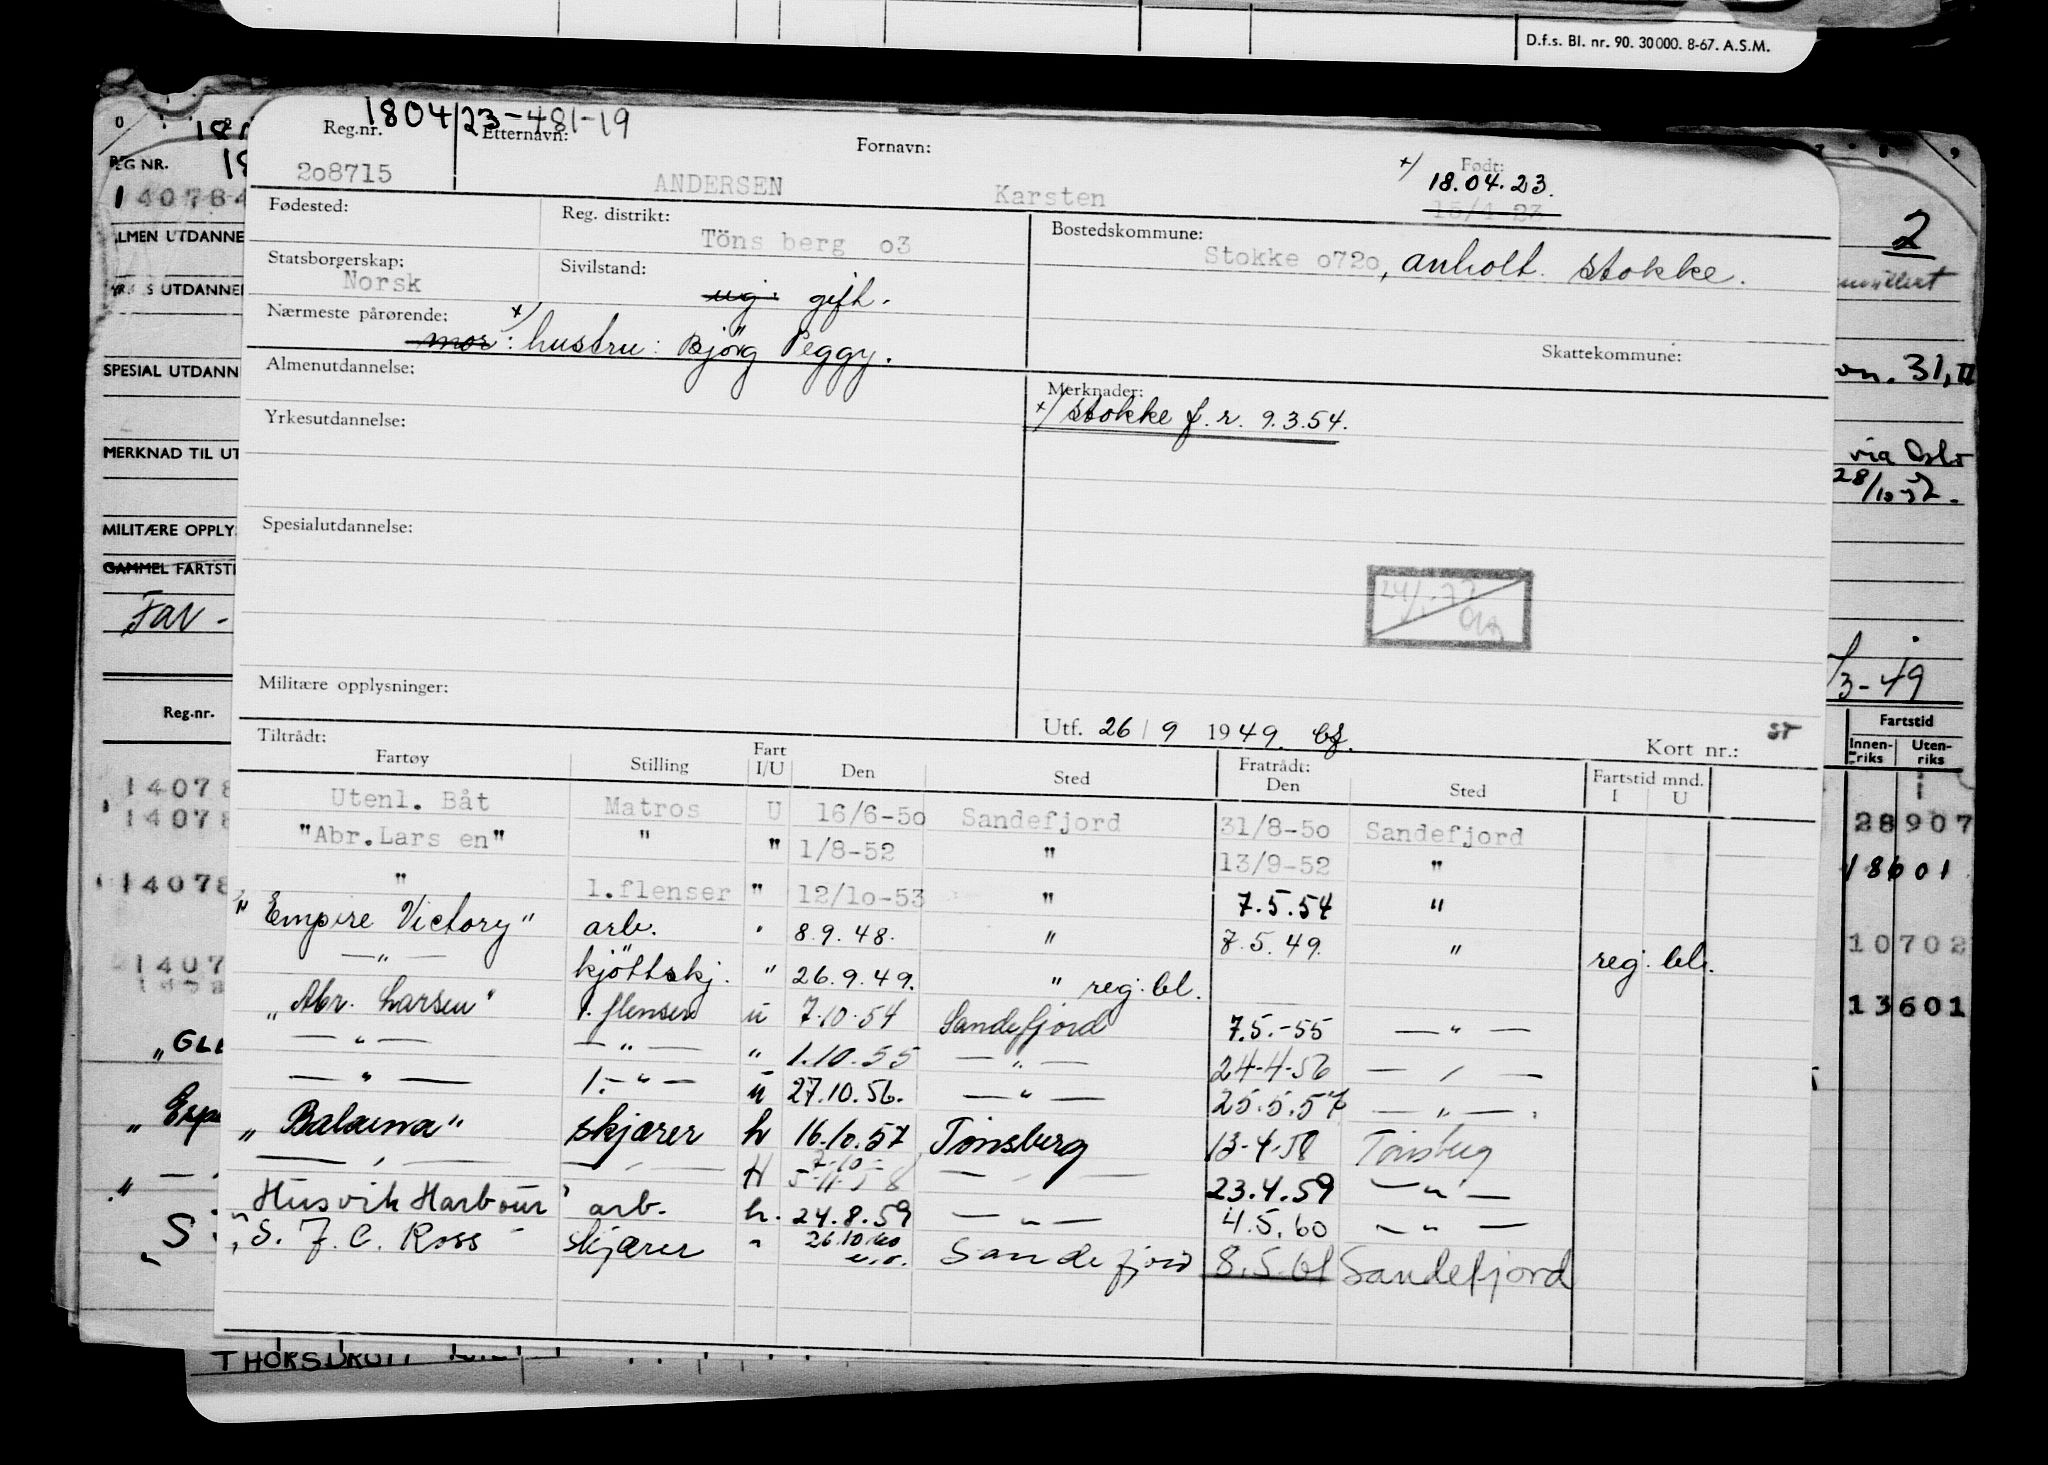 D.f.s. Bl. nr. 90. 30000. 8-67. A.S.M.
1804/23-481-19
Reg.nr. Etternavn: Fornavn: Født:
208715 ANDERSEN Karsten +) 18.04.23.
15/4-23
Fødested: Reg. distrikt: Bostedskommune:
Töns berg o3 Stokke o72o, anholt. Stokke.
Statsborgerskap: Sivilstand:
Norsk ug. gift.
Nærmeste pårørende: Skattekommune:
mor +) : hustru: Björg Peggy.
Almenutdannelse: Merknader:
+) Stokke f.r. 9.3.54.
Yrkesutdannelse:
Spesialutdannelse:
Militære opplysninger:
Utf. 26/9 1949. bf.
Kort nr.: ST
Tiltrådt: Fratrådt:
Fartøy Stilling Fart I/U Den Sted Den Sted Fartstid mnd. I U
Utenl. Båt Matros U 16/6-5o Sandefjord 31/8-5o Sandefjord
"Abr.Lars en" " " 1/8-52 " 13/9-52 "
" 1.flenser " 12/1o-53 " 7.5.54 "
"Empire Victory" arb. " 8.9.48. " 7.5.49. " reg. bl.
— " — kjöttskj. " 26.9.49. " reg. bl.
"Abr. Larsen" 1. flenser u 7.10.54 Sandefjord 7.5.-55 — " —
— " — — " — " 1.10.55 — " — 24-4-56 — " —
— " — 1.- " — u 27.10.56. — " — 25.5.57 — " —
"Balaena" skjærer h 16.10.57 Tønsberg 13-4-58 Tønsberg
— " — — " — H — " — 23.4.59 — " —
"Husvik Harbour" arb. h. 24.8.59 — " — 4.5.60 — " —
"S. F. C. Ross" skjærer " 26.10.60 Sandefjord 8.5.61 Sandefjord
REG NR.
140784
SPESIAL UTDANN
MERKNAD TIL UT
MILITÆRE OPPLY
GAMMEL FARTST
FaN -
Reg.nr.
1407
1407
1407
1407
2
on. 31, II
via Oslo
/3-49
Fartstid
Innen-riks Uten-riks
28907
18601
10702
13601